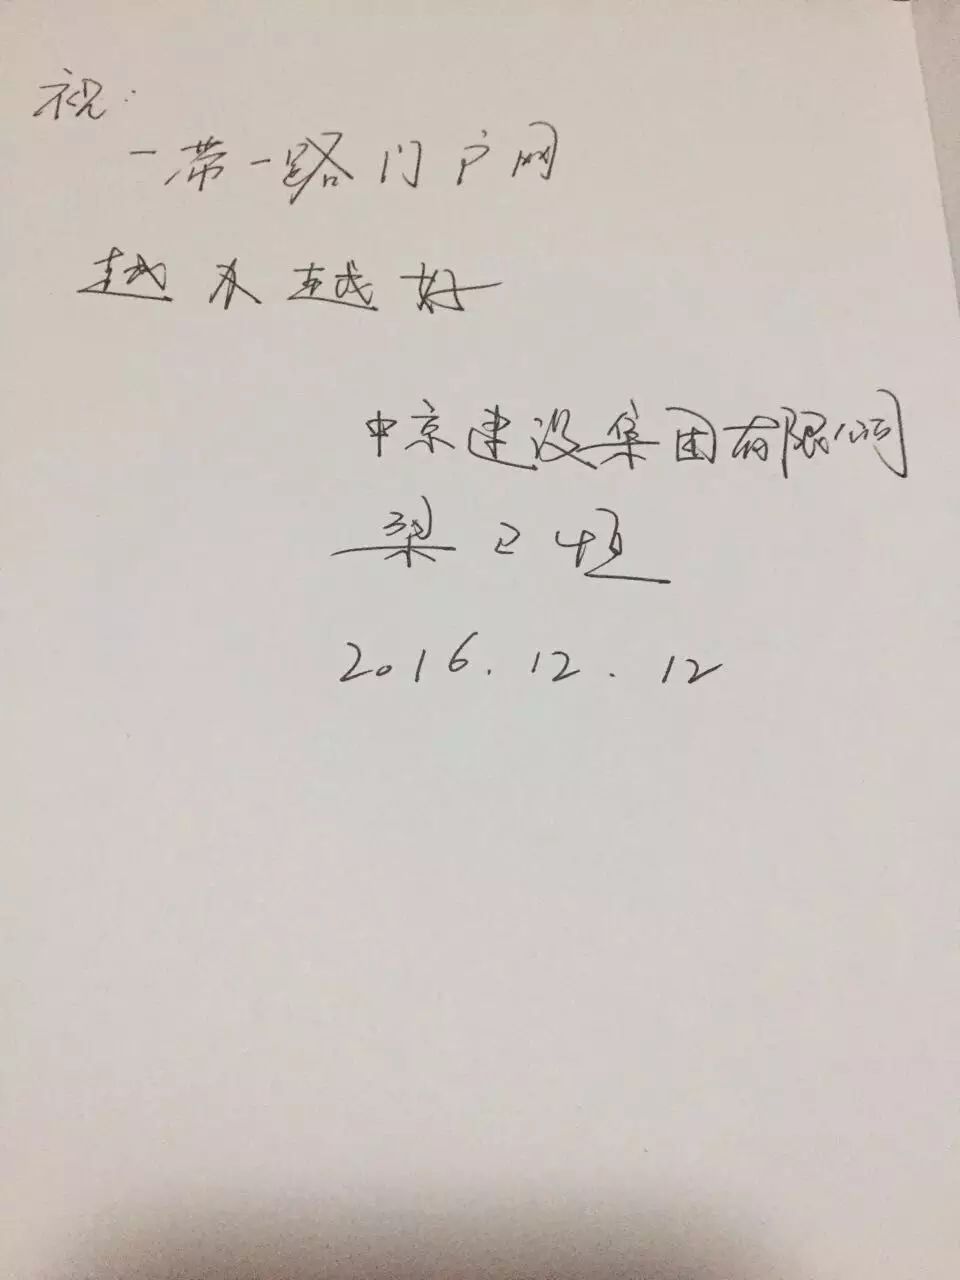 祝:
一带一路门户网
越办越好
中京建设集团有限公司
梁
2016.12.12